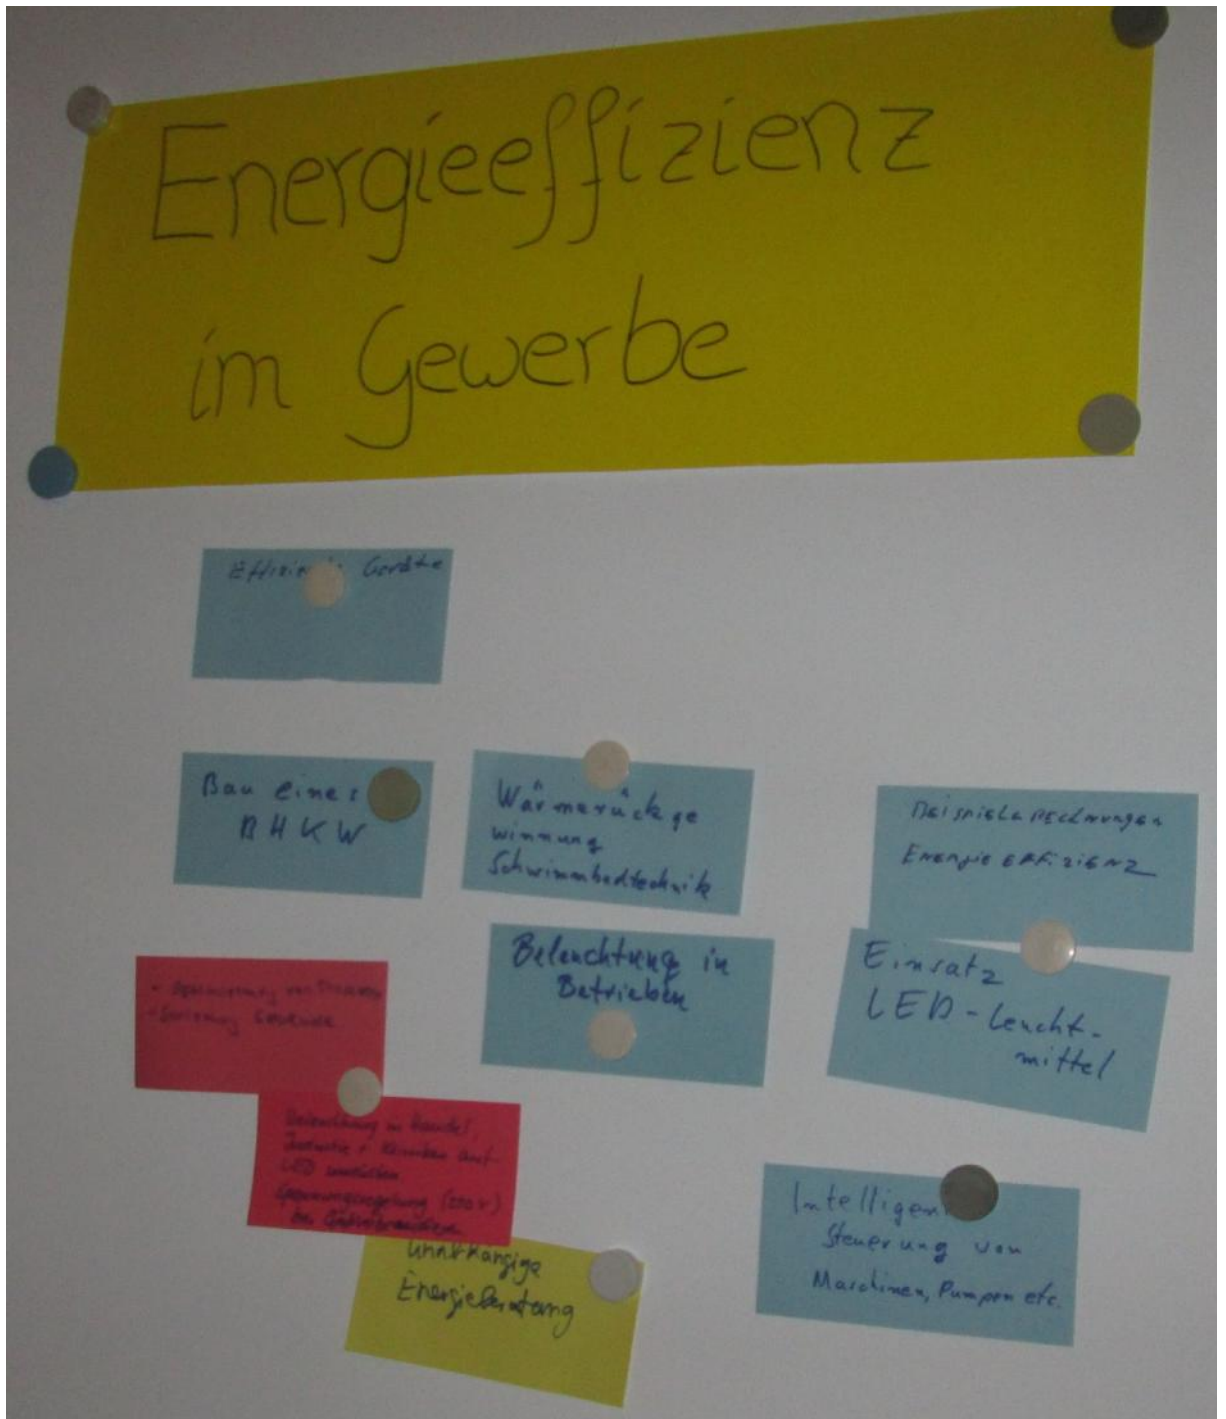 Energieeffizienz
im Gewerbe
Geräte
Bau eines
BHKW
Wärmerückge
winnung
Schwimmbadtechnik
Beispielsrechnungen
Energieeffizienz
Beleuchtung in
Betrieben
Einsatz
LED-Leucht-
mittel
Beleuchtung in Handel,
Industrie + Kliniken auf
LED umrüsten
Spannungsregelung
bei
Unabhängige
Energieberatung
Intelligen
Steuerung von
Maschinen, Pumpen etc.